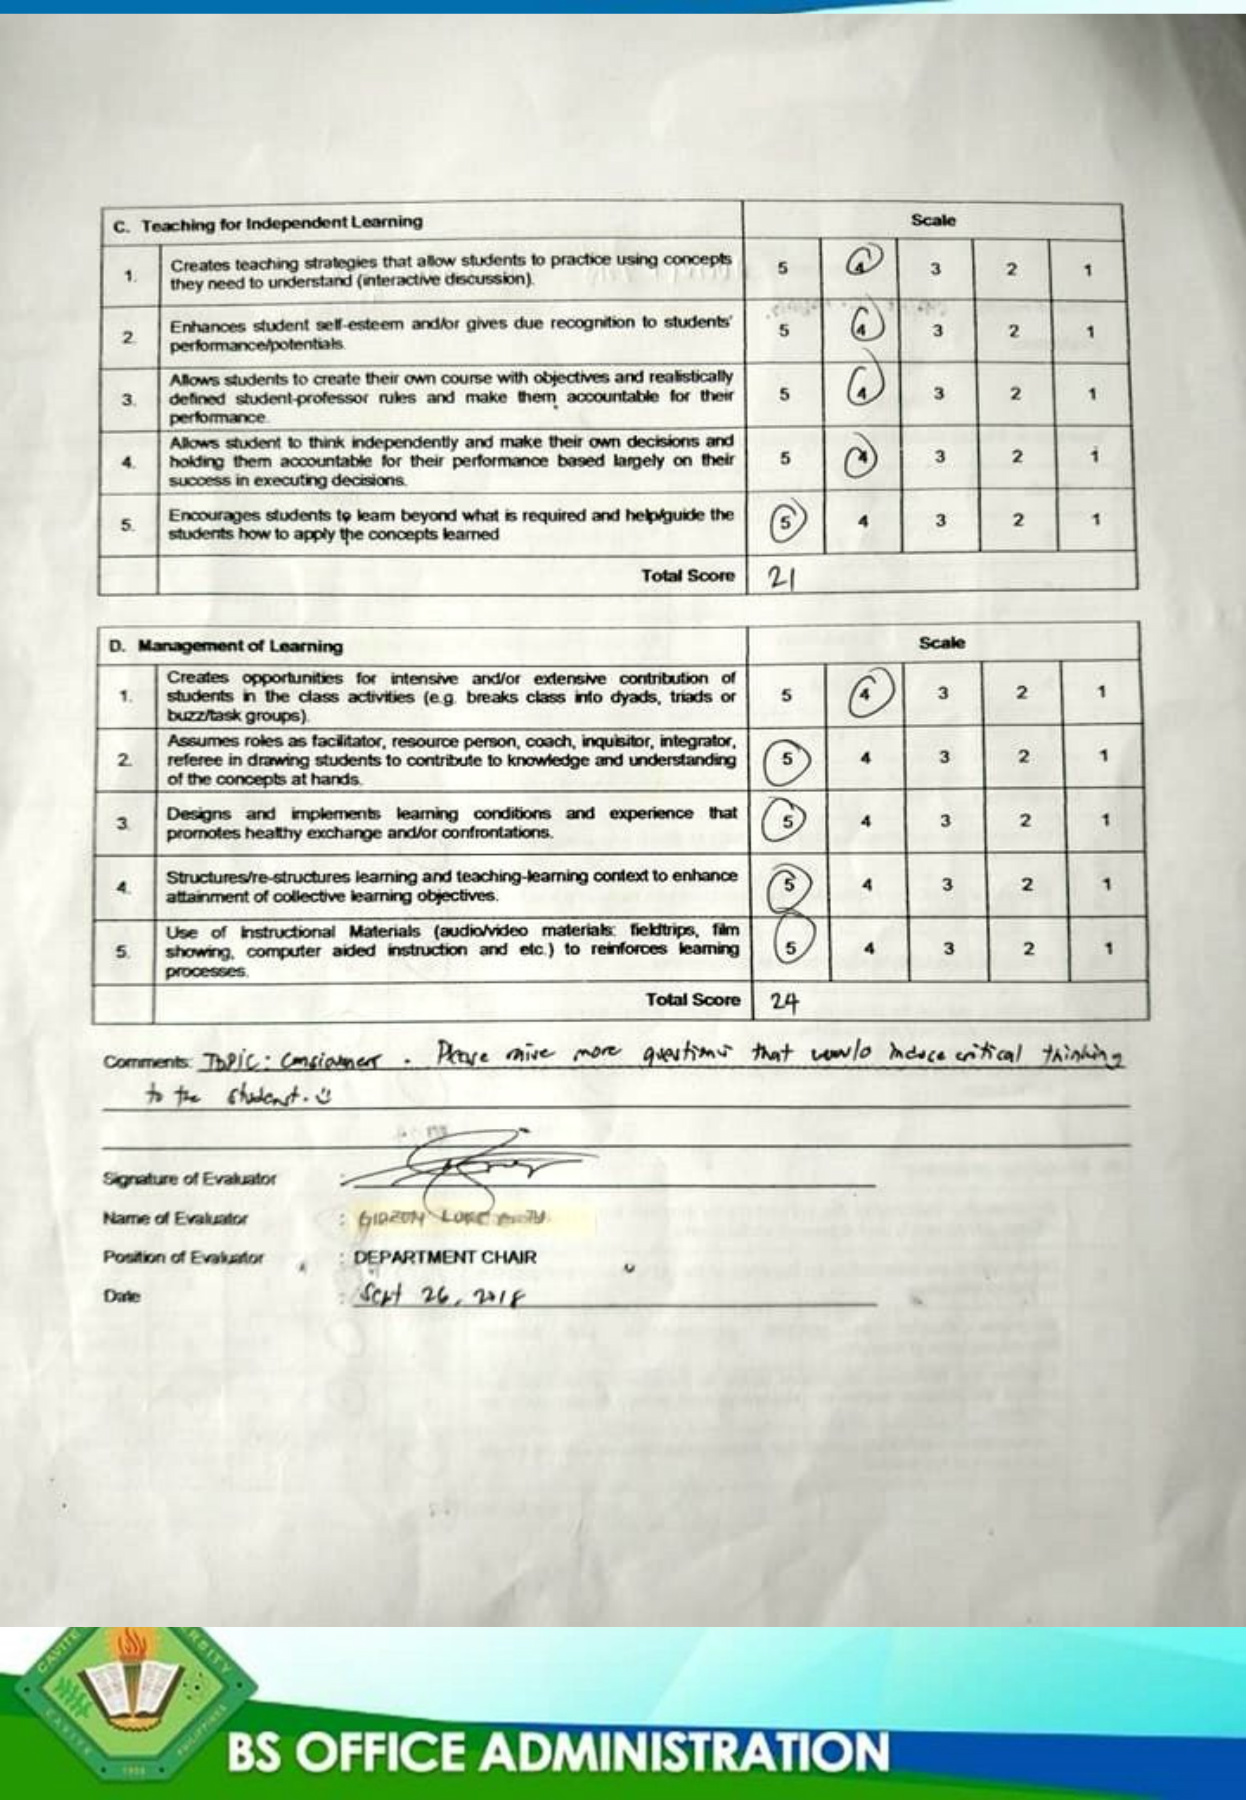 C. Teaching for Independent Learning Scale
1. Creates teaching strategies that allow students to practice using concepts they need to understand (interactive discussion). 5 4 3 2 1
2. Enhances student self-esteem and/or gives due recognition to students' performance/potentials. 5 4 3 2 1
3. Allows students to create their own course with objectives and realistically defined student-professor rules and make them accountable for their performance. 5 4 3 2 1
4. Allows student to think independently and make their own decisions and holding them accountable for their performance based largely on their success in executing decisions. 5 4 3 2 1
5. Encourages students to learn beyond what is required and help/guide the students how to apply the concepts learned 5 4 3 2 1
Total Score 21
D. Management of Learning Scale
1. Creates opportunities for intensive and/or extensive contribution of students in the class activities (e.g. breaks class into dyads, triads or buzz/task groups). 5 4 3 2 1
2. Assumes roles as facilitator, resource person, coach, inquisitor, integrator, referee in drawing students to contribute to knowledge and understanding of the concepts at hands. 5 4 3 2 1
3. Designs and implements learning conditions and experience that promotes healthy exchange and/or confrontations. 5 4 3 2 1
4. Structures/re-structures learning and teaching-learning context to enhance attainment of collective learning objectives. 5 4 3 2 1
5. Use of Instructional Materials (audio/video materials: fieldtrips, film showing, computer aided instruction and etc.) to reinforces learning processes. 5 4 3 2 1
Total Score 24
Comments: TOPIC: . Please raise more questions that would induce critical thinking
to the student.
Signature of Evaluator :
Name of Evaluator : LUKE
Position of Evaluator : DEPARTMENT CHAIR
Date : Sept 26, 2018
CAVITE
CAVITE
PHILIPPINES
BS OFFICE ADMINISTRATION